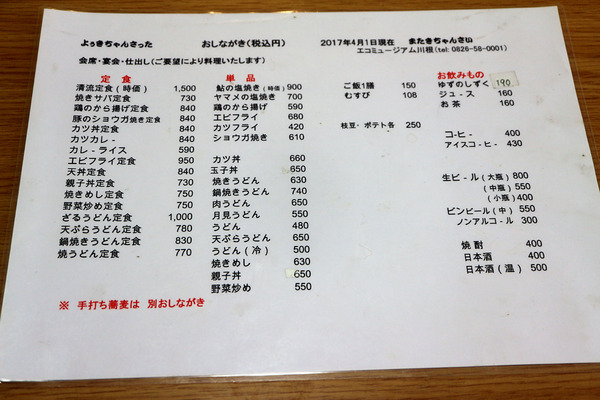 ようきちゃんさった　おしながき(税込円)　2017年4月1日現在　またきちゃんさい
エコミュージアム川根(tel: 0826-58-0001)
会席・宴会・仕出し(ご要望により料理いたします)
定食
清流定食(時価) 1,500
焼きサバ定食 730
鶏のから揚げ定食 840
豚のショウガ焼き定食 840
カツ丼定食 840
カツカレ- 840
カレ-ライス 590
エビフライ定食 950
天丼定食 840
親子丼定食 730
焼きめし定食 750
野菜炒め定食 750
ざるうどん定食 1,000
天ぷらうどん定食 780
鍋焼きうどん定食 830
焼うどん定食 770
単品
鮎の塩焼き(時価) 900
ヤマメの塩焼き 700
鶏のから揚げ 590
エビフライ 680
カツフライ 420
ショウガ焼き 610
カツ丼 660
玉子丼 650
焼きうどん 630
鍋焼きうどん 740
肉うどん 650
月見うどん 550
うどん 480
天ぷらうどん 650
うどん(冷) 500
焼きめし 630
親子丼 650
野菜炒め 550
ご飯1膳 150
むすび 108
枝豆・ポテト各 250
お飲みもの
ゆずのしずく 190
ジュ-ス 160
お茶 160
コ-ヒ- 400
アイスコ-ヒ- 430
生ビ-ル(大瓶) 800
(中瓶) 550
(小瓶) 400
ビンビール(中) 550
ノンアルコ-ル 300
焼酎 400
日本酒 400
日本酒(温) 500
※ 手打ち蕎麦は 別おしながき